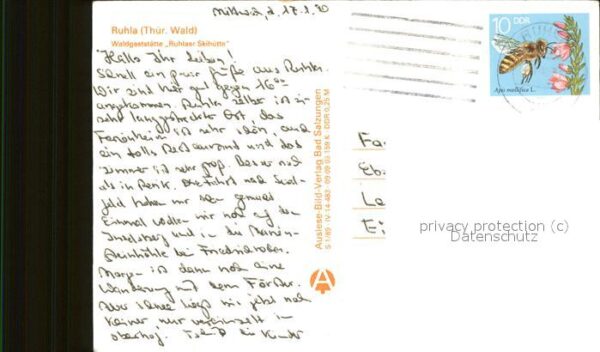 Mittwoch, d. 17.1.90
Ruhla (Thür. Wald)
Waldgaststätte „Ruhlaer Skihütte"
Hallo Ihr Lieben!
Schnell ein paar Grüße aus Ruhla.
Wir sind hier gut gegen 16⁰⁰
angekommen. Ruhla selber ist ein
sehr langgestreckter Ort, das
Ferienheim ist sehr schön, auch
ein tolles Restaurant und das
Zimmer ist sehr groß, besser noch
als in
Einmal wollen wir noch auf den
Inselsberg und in die Marien-
glashöhle bei Friedrichroda.
Morgen ist dann noch eine
Wanderung mit dem Förster.
Aber Schnee liegt hier jetzt noch
keiner, nur vereinzelt in
Oberhof.
Auslese-Bild-Verlag Bad Salzungen
S 1/89 · IV-14-483 · 09 09 03 159 K · DDR 0,25 M
A
10 DDR
Apis mellifica L.
Fa
Eb
Le
privacy protection (c)
Datenschutz